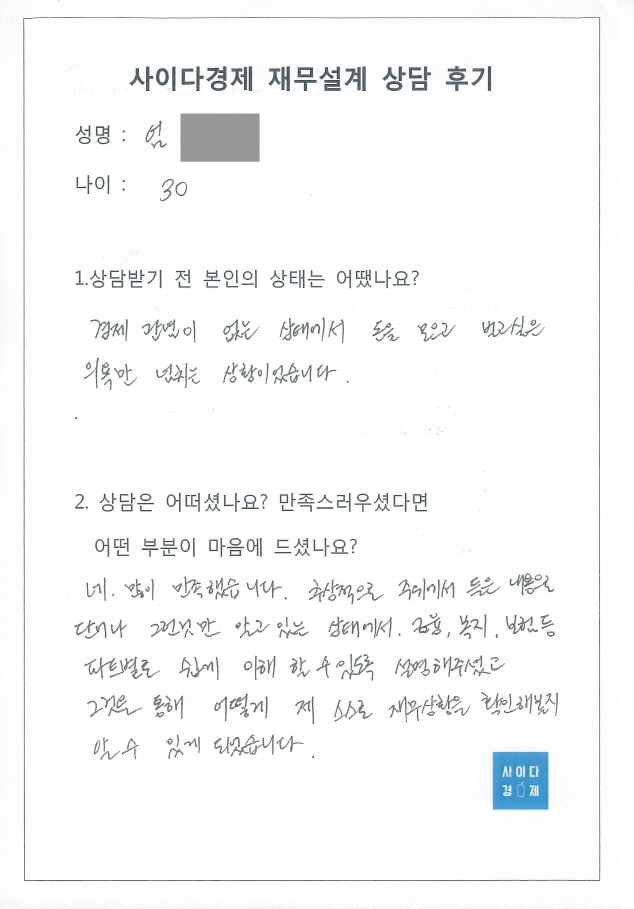 사이다경제 재무설계 상담 후기
성명 : 엄
나이 : 30
1.상담받기 전 본인의 상태는 어땠나요?
경제 관념이 없는 상태에서 돈을 모으고 벌고싶은
의욕만 넘치는 상황이었습니다.
.
2. 상담은 어떠셨나요? 만족스러우셨다면
어떤 부분이 마음에 드셨나요?
네. 많이 만족했습니다. 추상적으로 주위에서 들은 내용으로
단어나 그런것만 알고 있는 상태에서. 금융, 복지, 보험 등
파트별로 쉽게 이해 할 수 있도록 설명해주셨고
그것을 통해 어떻게 제 스스로 재무상황을 확인해볼지
알 수 있게 되었습니다.
사이다
경제